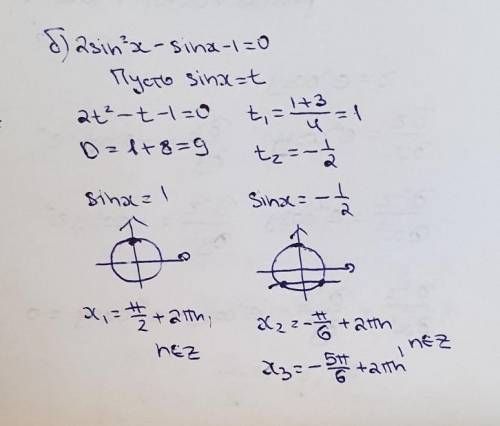 б) 2sin²x - sinx - 1 = 0
Пусть sinx = t
2t² - t - 1 = 0
D = 1 + 8 = 9
t₁ = (1+3)/4 = 1
t₂ = -1/2
sinx = 1
x₁ = π/2 + 2πn,
n∈Z
sinx = -1/2
x₂ = -π/6 + 2πn
x₃ = -5π/6 + 2πn, n∈Z